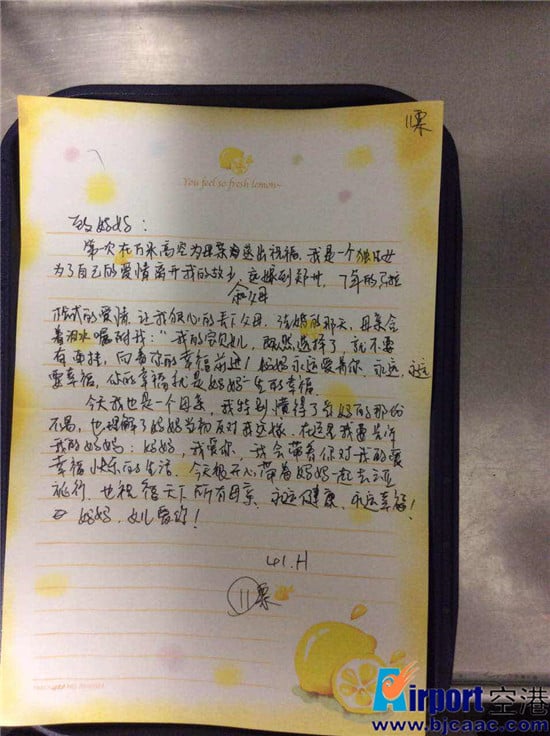 11票
You feel so fresh lemon~
致妈妈：
第一次在万米高空为母亲送出祝福，我是一个独生女
为了自己的爱情离开我的故乡，远嫁到郑州，7年的
父母
式的爱情，让我狠心的丢下父母，结婚的那天，母亲含
着泪水嘱咐我："我的宝贝儿，既然选择了，就不要
有牵挂，向着你的幸福前进！妈妈永远爱着你，永远，永远
要幸福，你的幸福就是妈妈一生的幸福。
今天我也是一个母亲，我特别懂得了当妈的那份
不易，也理解了妈妈当初反对我远嫁，在这里我要告诉
我的妈妈：妈妈，我爱你，我会带着你对我的爱
幸福快乐的生活，今天很开心带着妈妈一起去三亚
旅行，也祝福天下所有母亲，永远健康，永远幸福！
妈妈，女儿爱你！
41.H
11票
Airport空港
www.bjcaac.com